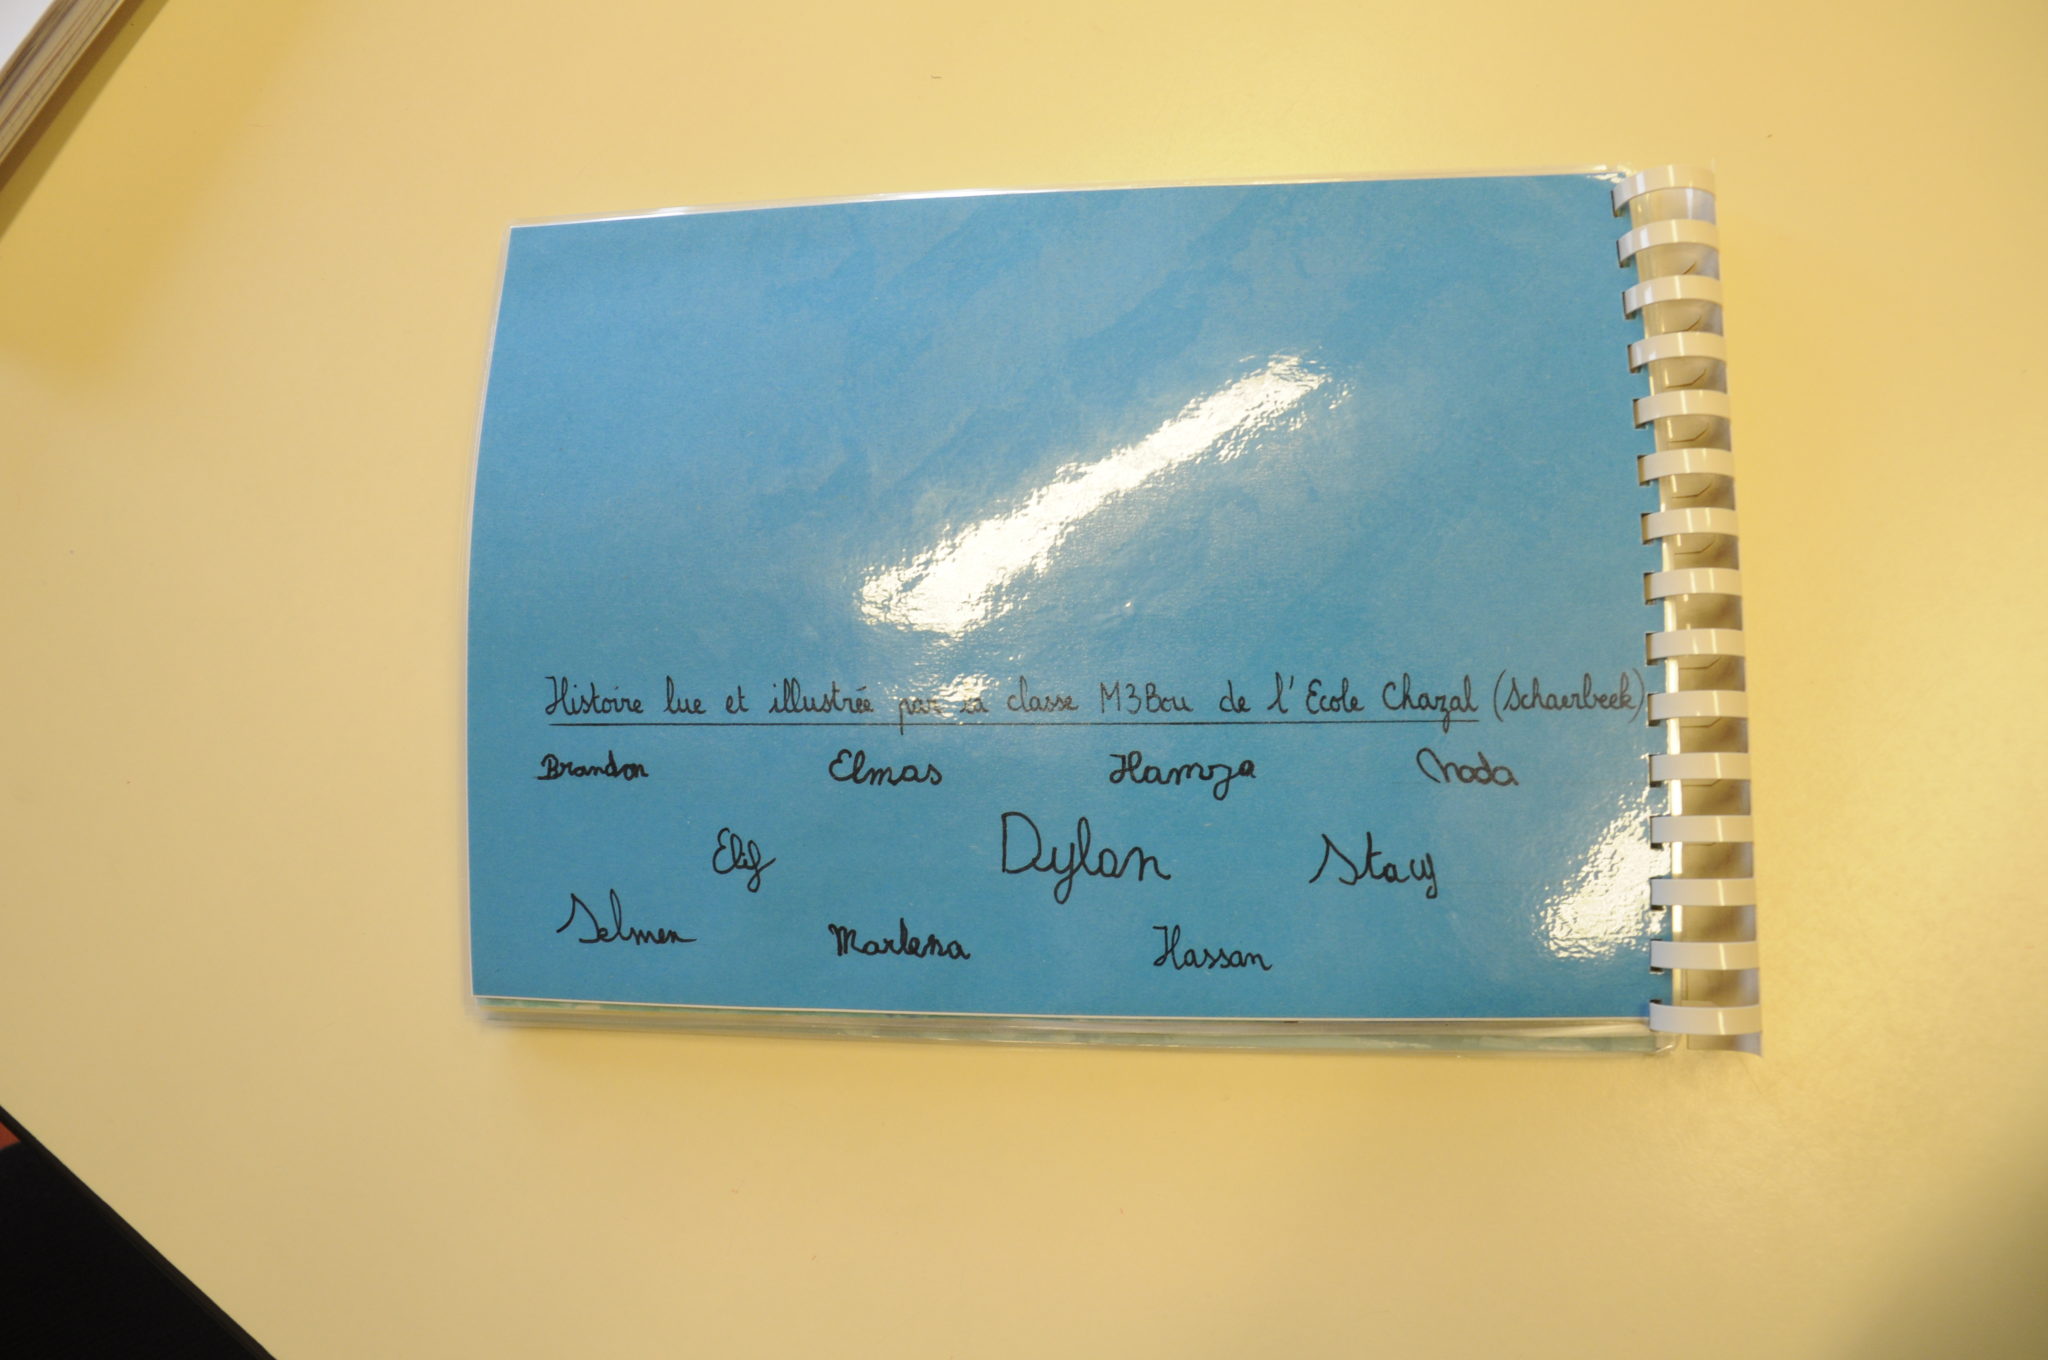 Histoire lue et illustrée par la classe M3Bou de l'Ecole Chazal (Schaerbeek)
Brandon Elmas Hamza Nada
Elif Dylan Stacy
Selmen Marlena Hassan